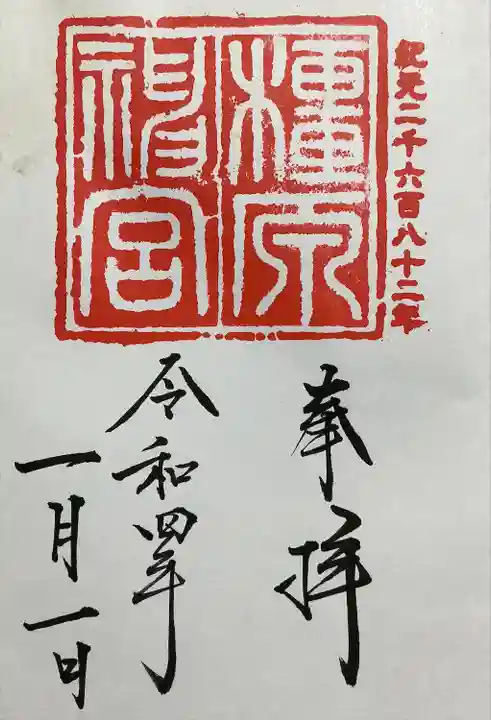 紀元二千六百八十二年
橿原
神宮
奉拝
令和四年
一月一日